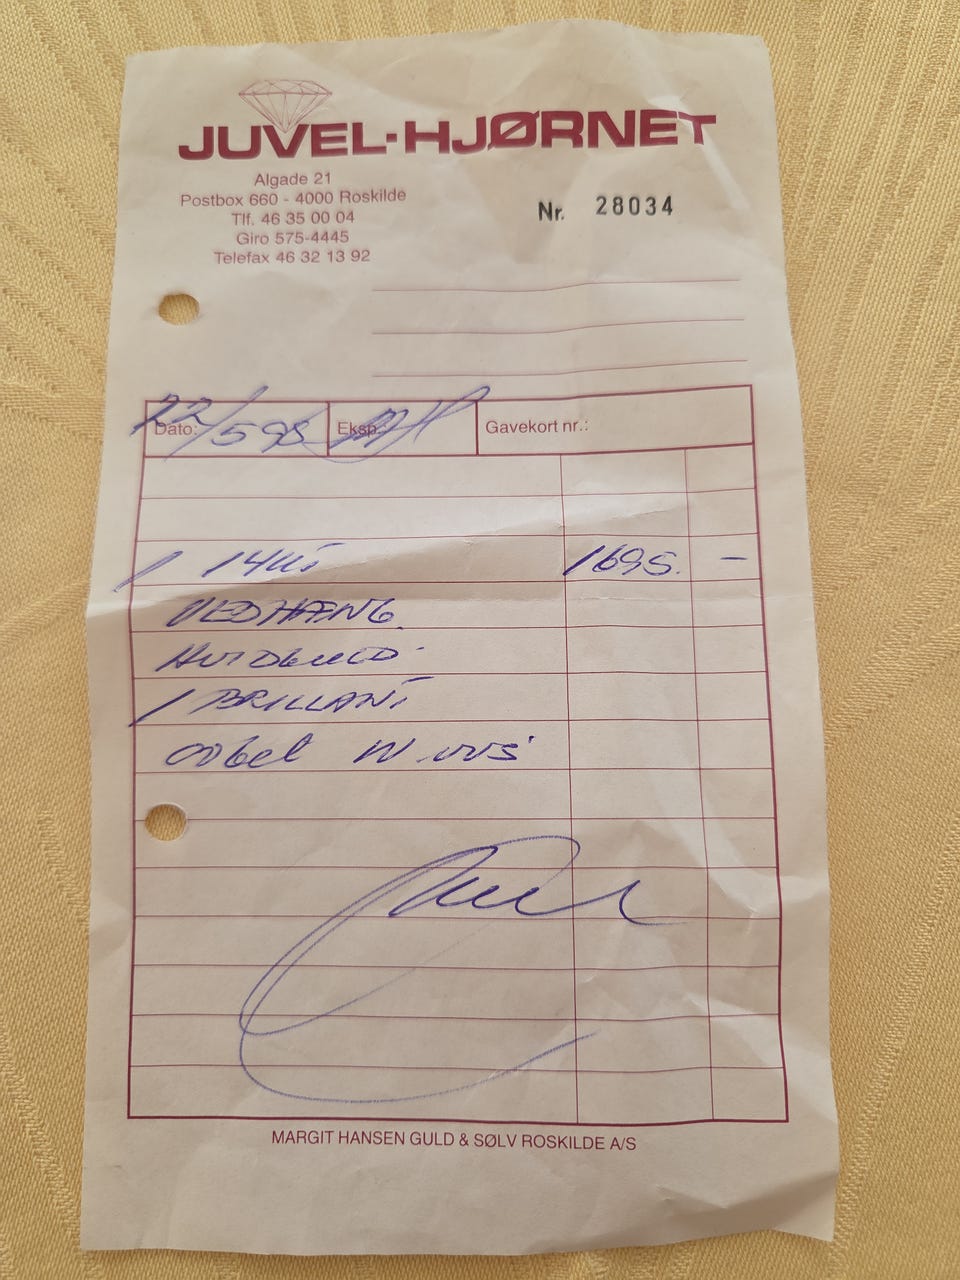 JUVEL-HJØRNET
Algade 21
Postbox 660 - 4000 Roskilde
Tlf. 46 35 00 04
Giro 575-4445
Telefax 46 32 13 92
Nr. 28034
Dato: 22/5 98 Eksp.: Gavekort nr.:
1 14kt 1695. -
VEDHÆNG.
HVIDGULD.
1 BRILLANT
W. VVS
MARGIT HANSEN GULD & SØLV ROSKILDE A/S